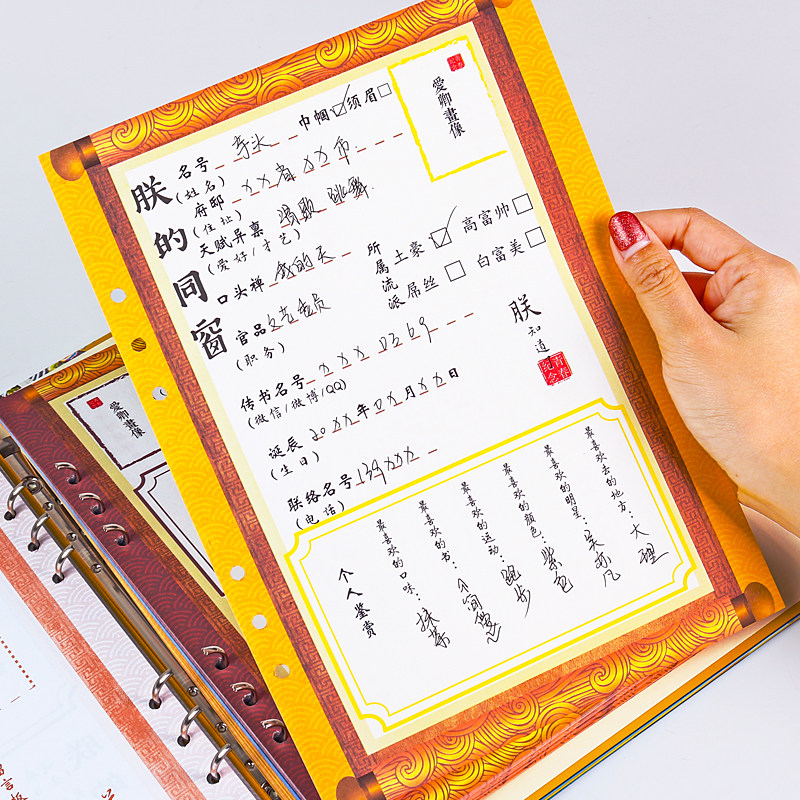 朕的同窗
名号 芋头 巾帼 须眉
(姓名)
府邸 XX省XX市
(住址)
天赋异禀 唱歌 跳舞
(爱好/才艺)
口头禅 我的天
官品 文艺委员
(职务)
传书名号 XXX0369
(微信/微博/QQ)
诞辰 20XX年0X月XX日
(生日)
联络名号 139XXXX
(电话)
愛卿畫像
青春纪念
所属流派
土豪 高富帅
屌丝 白富美
朕知道
青春纪念
最喜欢去的地方：大理
最喜欢的明星：吴亦凡
最喜欢的颜色：紫色
最喜欢的运动：跑步
最喜欢的书：
最喜欢的口味：抹茶
个人鉴赏
愛卿畫像
留言板